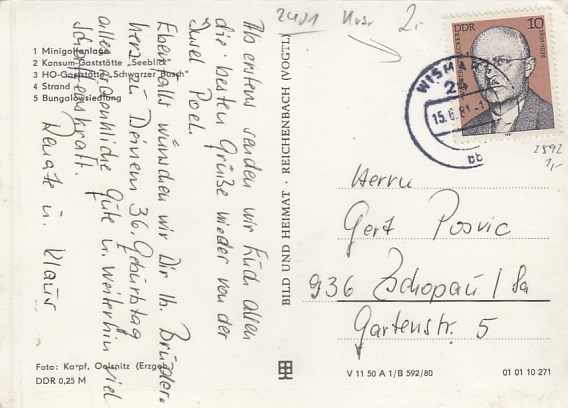 1 Minigolfanlage
2 Konsum-Gaststätte „Seeblick"
3 HO-Gaststätte „Schwarzer Busch"
4 Strand
5 Bungalowsiedlung
Als erstens senden wir Euch allen
die besten Grüße wieder von der
Insel Poel.
Ebenfalls wünschen wir Dir lb. Bruder
herzl. zu Deinem 36. Geburtstag
alles erdenkliche Gute u. weiterhin viel
Schaffenskraft.
Renate u. Klaus
Foto: Karpf, Oelsnitz (Erzgeb.)
DDR 0,25 M
BILD UND HEIMAT · REICHENBACH (VOGTL)
2401
2,-
DDR 10
WISMAR
24
15.6.81
bb
2592
1,-
Herrn
Gert Posvic
936 Zschopau / Sa
Gartenstr. 5
V 11 50 A 1/B 592/80
01 01 10 271